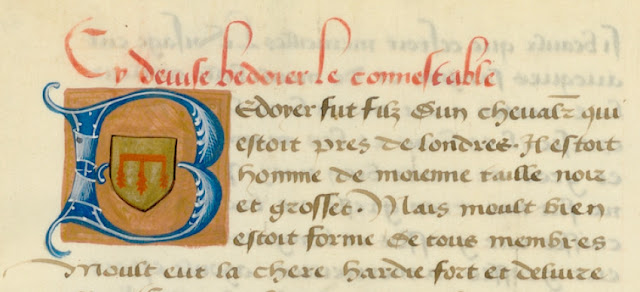 Cy deuise bedoier le connestable
BEdoyer fut filz dun cheualr̄ qui
estoit pres de londres. Il estoit
homme de moienne taille noir
et grosset. Mais moult bien
estoit forme de tous membres
Moult eut la chere hardie fort et deliure